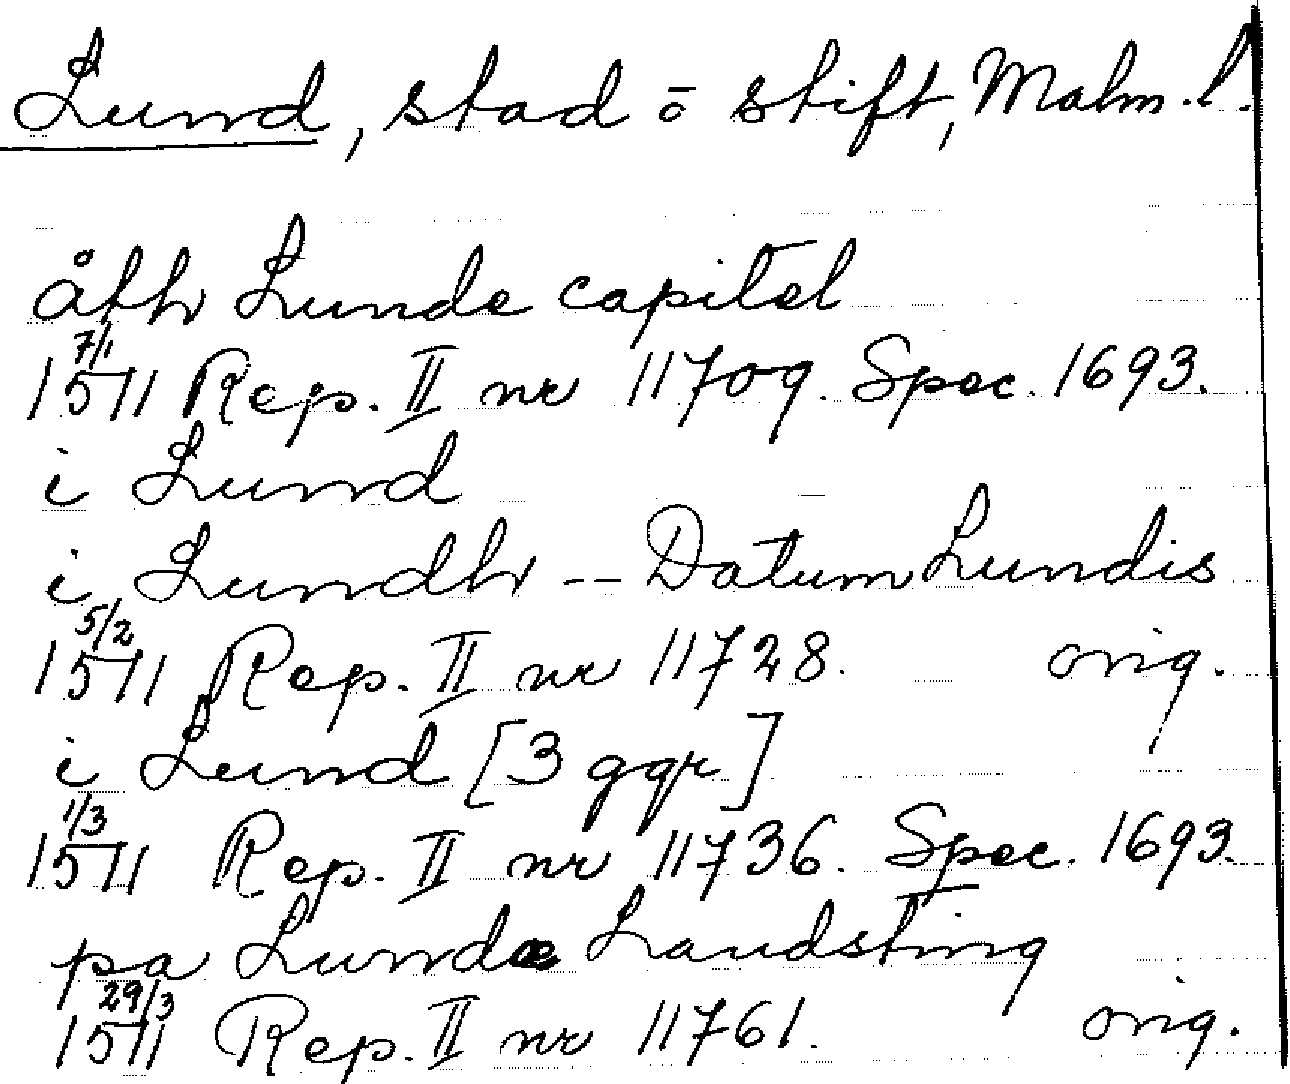 Lund, stad o stift, Malm. l.
åth Lunde capitel
7/1
1511 Rep. II nr 11709. Spec. 1693.
i Lund
i Lundh -- Datum Lundis
5/2
1511 Rep. II nr 11728. orig.
i Lund [3 ggr]
1/3
1511 Rep. II nr 11736. Spec. 1693.
pa Lunde Landsting
29/3
1511 Rep. II nr 11761. orig.